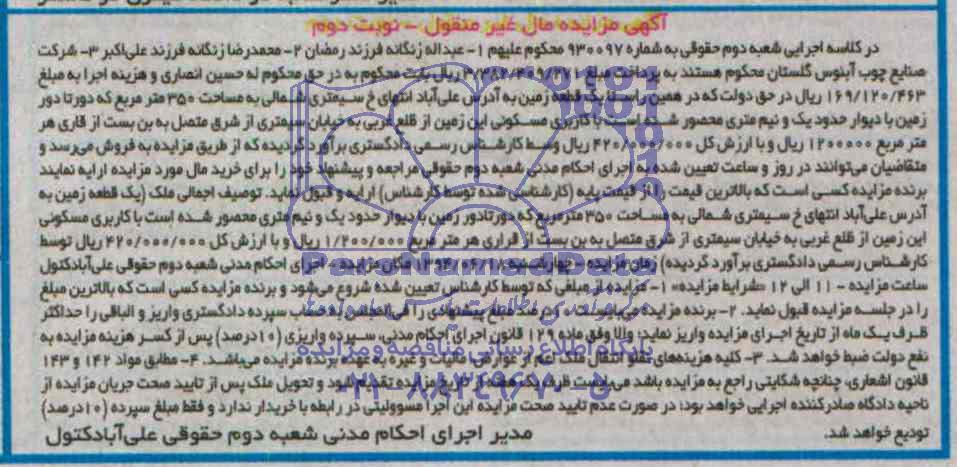 آگهی مزایده مال غیر منقول - نوبت دوم
در کلاسه اجرایی شعبه دوم حقوقی به شماره ۹۳۰۰۹۷ محکوم علیهم ۱- عبداله زنگانه فرزند رمضان ۲- محمدرضا زنگانه فرزند علی‌اکبر ۳- شرکت
صنایع چوب آبنوس گلستان محکوم هستند به پرداخت مبلغ ریال بابت محکوم به در حق محکوم له حسین انصاری و هزینه اجرا به مبلغ
۱۶۹/۱۲۰/۴۶۳ ریال در حق دولت که در همین راستا یک قطعه زمین به آدرس علی‌آباد انتهای خ سیمتری شمالی به مساحت ۳۵۰ متر مربع که دورتا دور
زمین با دیوار حدود یک و نیم متری محصور شده است با کاربری مسکونی این زمین از ظلع غربی به خیابان سیمتری از شرق متصل به بن بست از قاری هر
متر مربع ۱۲۰۰۰۰۰ ریال و با ارزش کل ۴۲۰/۰۰۰/۰۰۰ ریال توسط کارشناس رسمی دادگستری برآورد گردیده که از طریق مزایده به فروش می‌رسد و
متقاضیان می‌توانند در روز و ساعت تعیین شده به اجرای احکام مدنی شعبه دوم حقوقی مراجعه و پیشنهاد خود را برای خرید مال مورد مزایده ارایه نمایند
برنده مزایده کسی است که بالاترین قیمت را از قیمت پایه (کارشناسی شده توسط کارشناس) ارایه و قبول نماید. توصیف اجمالی ملک (یک قطعه زمین به
آدرس علی‌آباد انتهای خ سیمتری شمالی به مساحت ۳۵۰ متر مربع که دور تادور زمین با دیوار حدود یک و نیم متری محصور شده است با کاربری مسکونی
این زمین از ظلع غربی به خیابان سیمتری از شرق متصل به بن بست از قراری هر متر مربع ۱/۲۰۰/۰۰۰ ریال و با ارزش کل ۴۲۰/۰۰۰/۰۰۰ ریال توسط
کارشناس رسمی دادگستری برآورد گردیده) زمان مزایده - چهارشنبه مکان مزایده - اجرای احکام مدنی شعبه دوم حقوقی علی‌آبادکتول
ساعت مزایده - ۱۱ الی ۱۲ «شرایط مزایده» ۱- مزایده از مبلغی که توسط کارشناس تعیین شده شروع می‌شود و برنده مزایده کسی است که بالاترین مبلغ
را در جلسه مزایده قبول نماید. ۲- برنده مزایده می‌بایست ۱۰ درصد مبلغ پیشنهادی را فی‌المجلس به حساب سپرده دادگستری واریز و الباقی را حداکثر
ظرف یک ماه از تاریخ اجرای مزایده واریز نماید؛ والا وفق ماده ۱۲۹ قانون اجرای احکام مدنی، سپرده واریزی (۱۰درصد) پس از کسر هزینه مزایده به
نفع دولت ضبط خواهد شد. ۳- کلیه هزینه‌های نقل و انتقال ملک اعم از عوارض، مالیات و غیره به عهده برنده مزایده می‌باشد. ۴- مطابق مواد ۱۴۲ و ۱۴۳
قانون اشعاری، چنانچه شکایتی راجع به مزایده باشد می‌بایست ظرف یک هفته از تاریخ مزایده تقدیم شود و تحویل ملک پس از تایید صحت جریان مزایده از
ناحیه دادگاه صادرکننده اجرایی خواهد بود؛ در صورت عدم تایید صحت مزایده این اجرا مسوولیتی در رابطه با خریدار ندارد و فقط مبلغ سپرده (۱۰درصد)
تودیع خواهد شد.
مدیر اجرای احکام مدنی شعبه دوم حقوقی علی‌آبادکتول
پایگاه اطلاع رسانی مناقصه و مزایده
۰۲۱-۸۸۳۴۹۶۷۰-۵